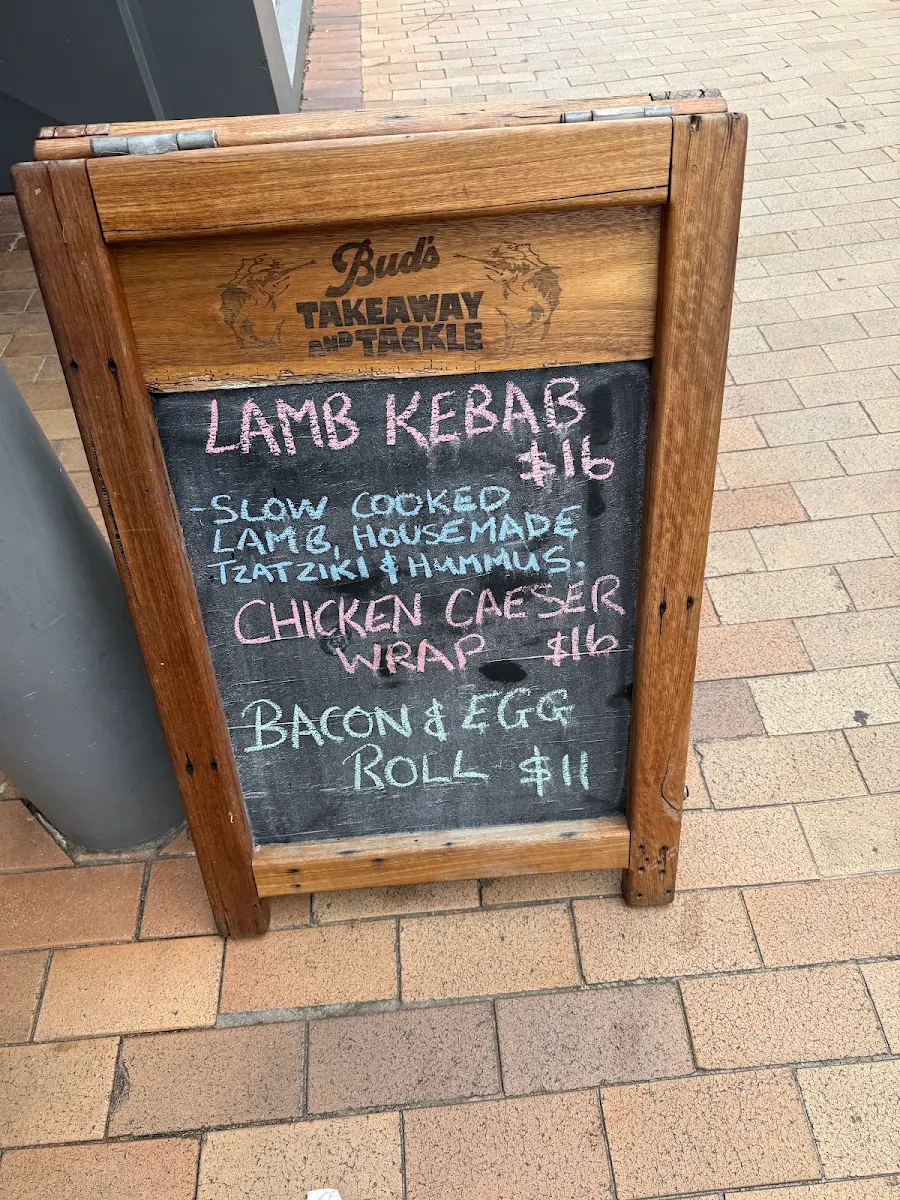 Bud's
TAKEAWAY
AND TACKLE
LAMB KEBAB
$16
-SLOW COOKED
LAMB, HOUSEMADE
TZATZIKI & HUMMUS.
CHICKEN CAESER
WRAP $16
BACON & EGG
ROLL $11